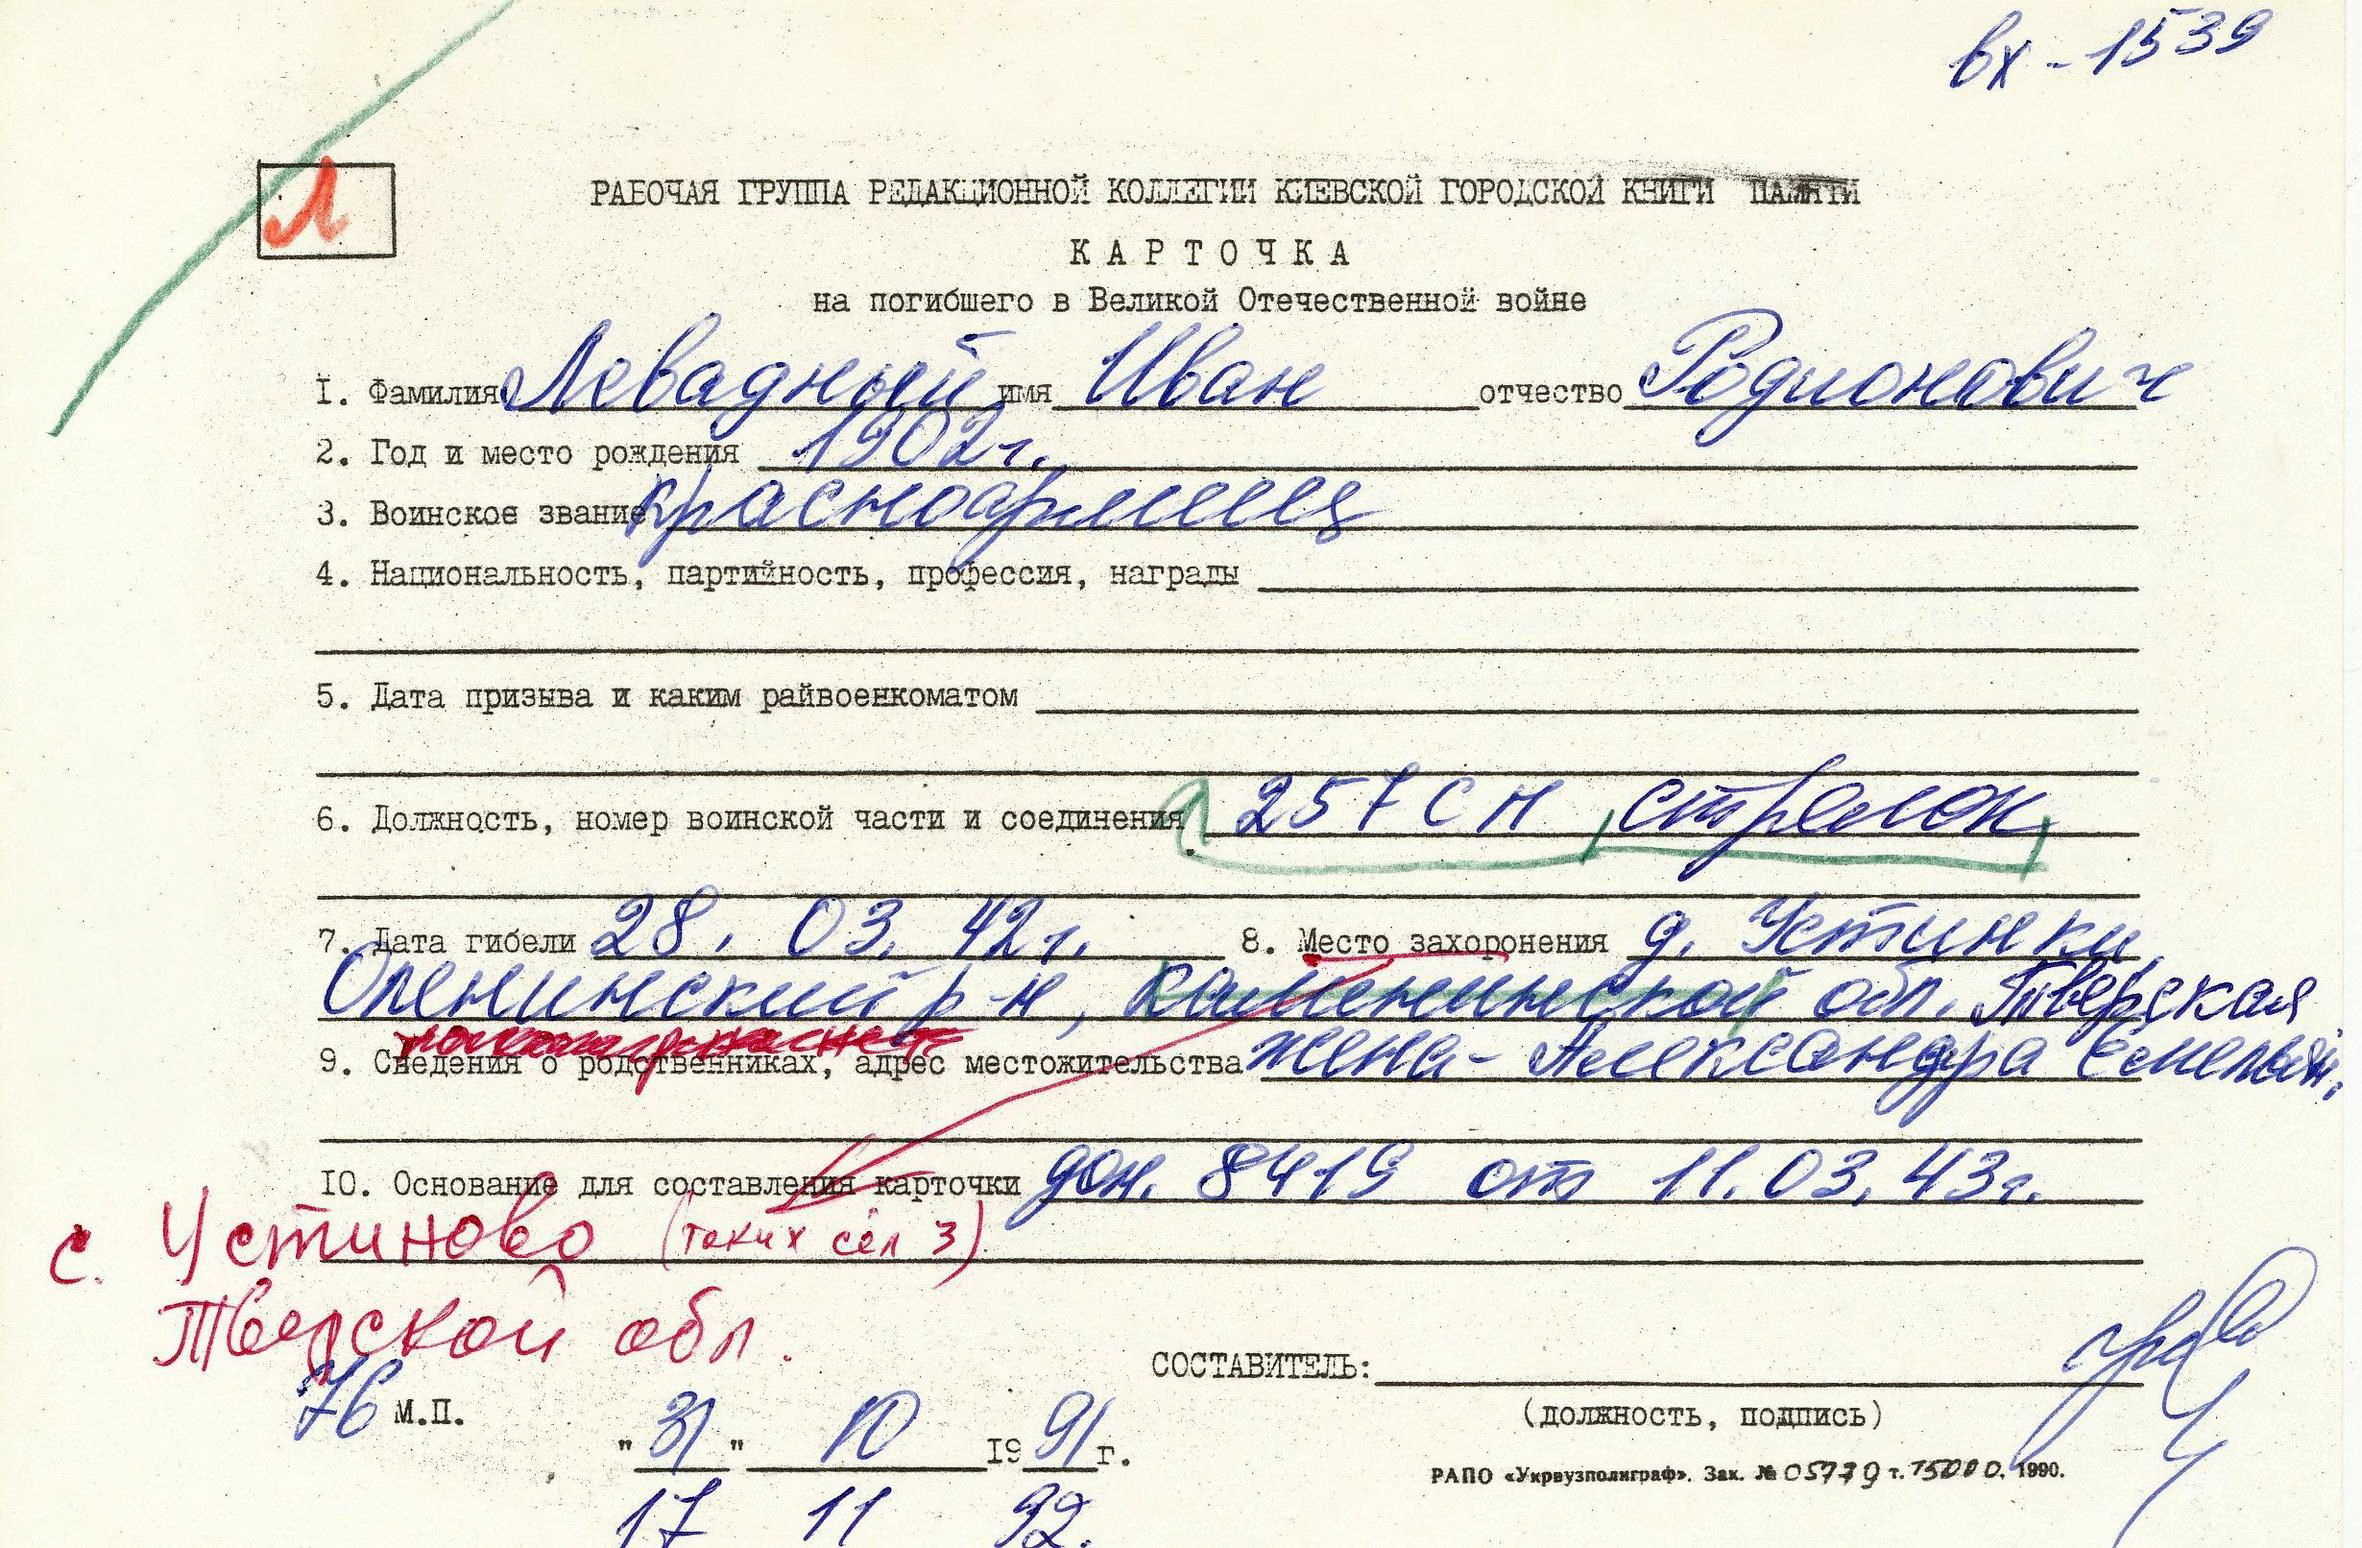 вх - 1539
Л
РАБОЧАЯ ГРУППА РЕДАКЦИОННОЙ КОЛЛЕГИИ КИЕВСКОЙ ГОРОДСКОЙ КНИГИ ПАМЯТИ
КАРТОЧКА
на погибшего в Великой Отечественной войне
1. Фамилия Левадный имя Иван отчество Родионович
2. Год и место рождения 1902 г.
3. Воинское звание красноармеец
4. Национальность, партийность, профессия, награды
5. Дата призыва и каким райвоенкоматом
6. Должность, номер воинской части и соединения 257 СП, стрелок
7. Дата гибели 28. 03. 42 г. 8. Место захоронения д. Устинки
Оленинский р-н, Калининской обл. Тверская
9. Сведения о родственниках, адрес местожительства жена - Александра Емельян.
10. Основание для составления карточки дон. 8419 от 11.03.43 г.
с. Устиново (таких сёл 3)
Тверской обл.
СОСТАВИТЕЛЬ:
76 М.П.
(должность, подпись)
"31" 10 1991 г.
РАПО «Укрвузполиграф». Зак. № 05779 т. 15000. 1990.
17 11 92.